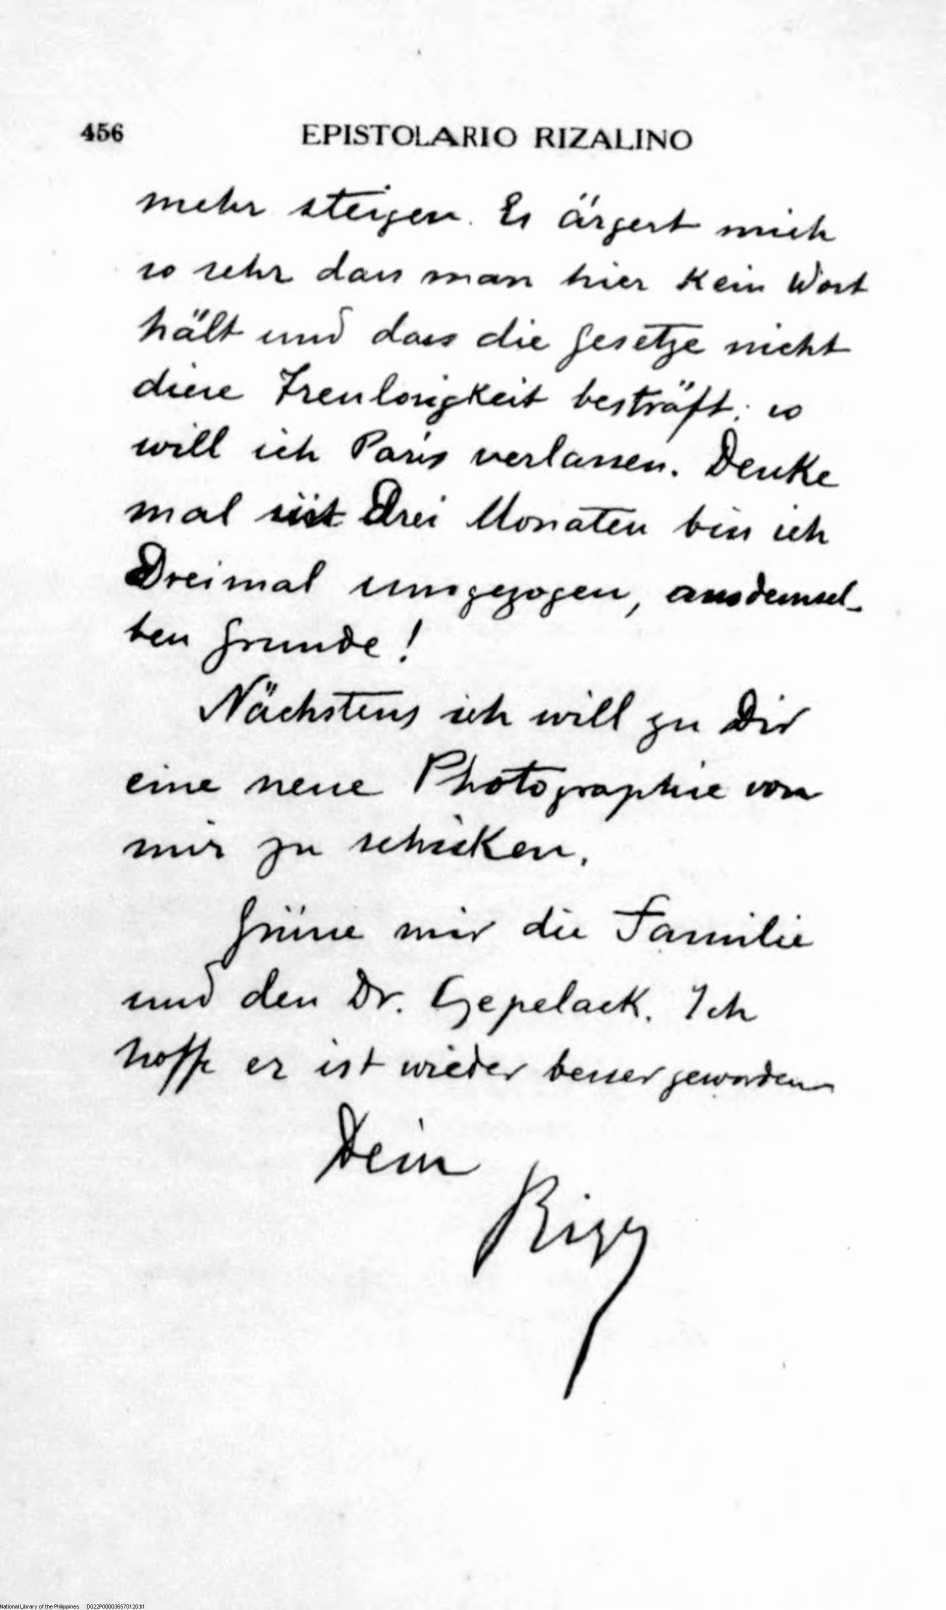 456 EPISTOLARIO RIZALINO
mehr steigen. Es ärgert mich
so sehr dass man hier kein Wort
hält und dass die Gesetze nicht
diese Treulosigkeit besträft; so
will ich Paris verlassen. Denke
mal seit Drei Monaten bin ich
Dreimal umgezogen, ausdemsel-
ben Grunde!
Nächstens ich will zu Dir
eine neue Photographie von
mir zu schicken.
Grüsse mir die Familie
und den Dr. Czepelack. Ich
hoffe er ist wieder besser geworden
Dein
Rizal
National Library of the Philippines